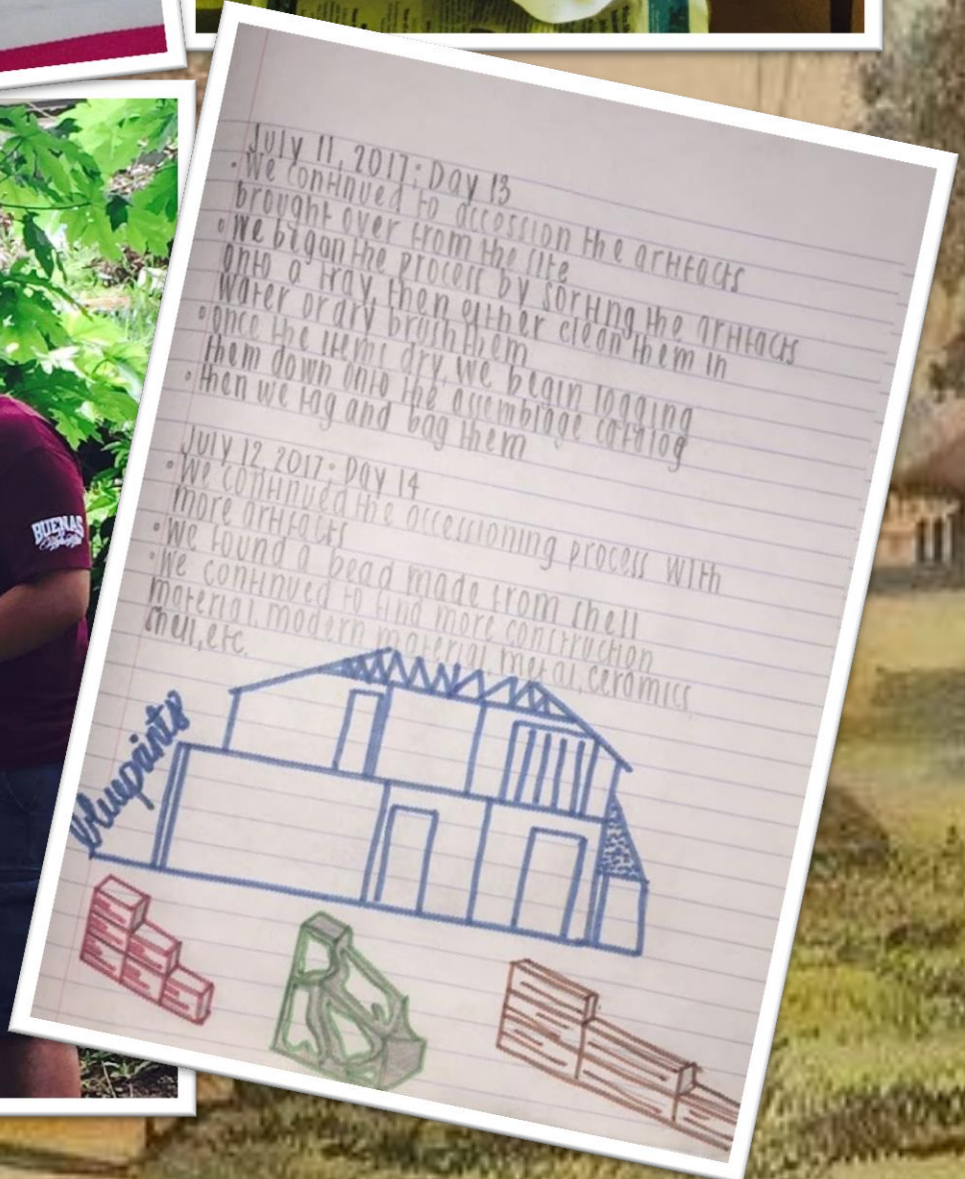 July 11, 2017: Day 13
• We continued to accession the artifacts
brought over from the site
• We began the process by sorting the artifacts
onto a tray, then either clean them in
water or dry brush them
• once the items dry, we begin logging
them down onto the assemblage catalog
• then we tag and bag them
July 12, 2017: Day 14
• We continued the accessioning process with
more artifacts
• We found a bead made from shell
• We continued to find more construction
material, modern material, metal, ceramics,
shell, etc.
blueprints
BUENAS